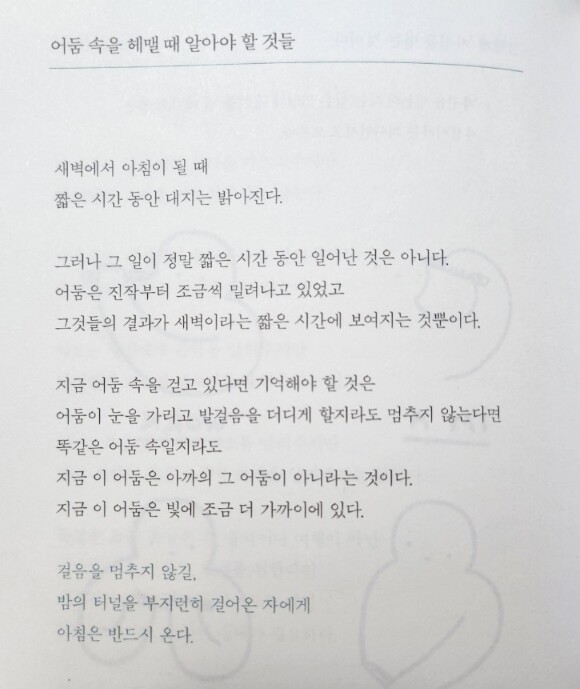 어둠 속을 헤맬 때 알아야 할 것들
새벽에서 아침이 될 때
짧은 시간 동안 대지는 밝아진다.
그러나 그 일이 정말 짧은 시간 동안 일어난 것은 아니다.
어둠은 진작부터 조금씩 밀려나고 있었고
그것들의 결과가 새벽이라는 짧은 시간에 보여지는 것뿐이다.
지금 어둠 속을 걷고 있다면 기억해야 할 것은
어둠이 눈을 가리고 발걸음을 더디게 할지라도 멈추지 않는다면
똑같은 어둠 속일지라도
지금 이 어둠은 아까의 그 어둠이 아니라는 것이다.
지금 이 어둠은 빛에 조금 더 가까이에 있다.
걸음을 멈추지 않길,
밤의 터널을 부지런히 걸어온 자에게
아침은 반드시 온다.